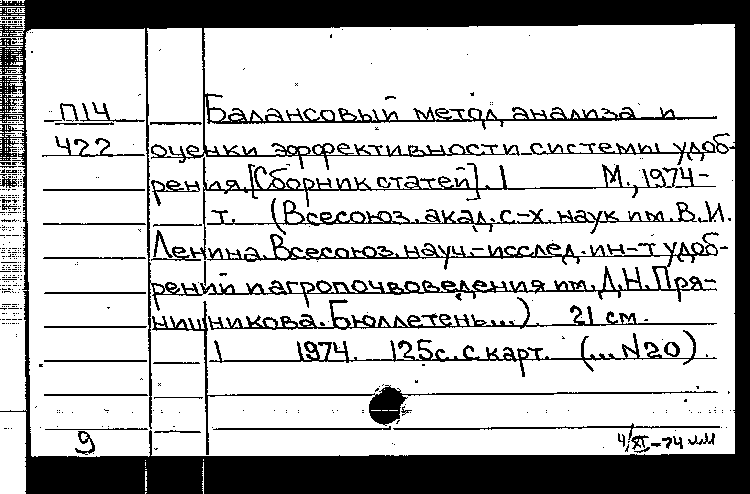 П14 Балансовый метод анализа и
422 оценки эффективности системы удоб-
рения. [Сборник статей]. 1 М., 1974-
т. (Всесоюз. акад. с-х. наук им. В.И.
Ленина. Всесоюз. науч.-исслед. ин-т удоб-
рений и агропочвоведения им. Д.Н. Пря-
нишникова. Бюллетень...). 21 см.
1 1974. 125с. с карт. (...N20).
9 4/XI-74